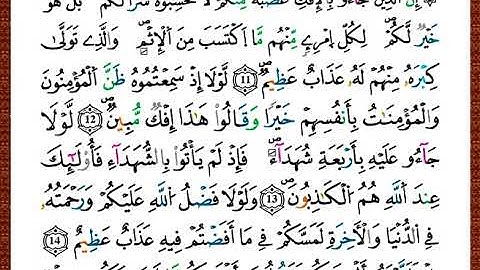 إِنَّ الَّذِينَ جَاءُو بِالْإِفْكِ عُصْبَةٌ مِّنكُمْ لَا تَحْسَبُوهُ شَرًّا لَّكُم بَلْ هُوَ
خَيْرٌ لَّكُمْ ۚ لِكُلِّ امْرِئٍ مِّنْهُم مَّا اكْتَسَبَ مِنَ الْإِثْمِ ۚ وَالَّذِي تَوَلَّىٰ
كِبْرَهُ مِنْهُمْ لَهُ عَذَابٌ عَظِيمٌ 11 لَّوْلَا إِذْ سَمِعْتُمُوهُ ظَنَّ الْمُؤْمِنُونَ
وَالْمُؤْمِنَٰتُ بِأَنفُسِهِمْ خَيْرًا وَقَالُوا هَٰذَا إِفْكٌ مُّبِينٌ 12 لَّوْلَا
جَاءُو عَلَيْهِ بِأَرْبَعَةِ شُهَدَاءَ ۚ فَإِذْ لَمْ يَأْتُوا بِالشُّهَدَاءِ فَأُولَٰئِكَ
عِندَ اللَّهِ هُمُ الْكَٰذِبُونَ 13 وَلَوْلَا فَضْلُ اللَّهِ عَلَيْكُمْ وَرَحْمَتُهُ
فِي الدُّنْيَا وَالْآخِرَةِ لَمَسَّكُمْ فِي مَا أَفَضْتُمْ فِيهِ عَذَابٌ عَظِيمٌ 14